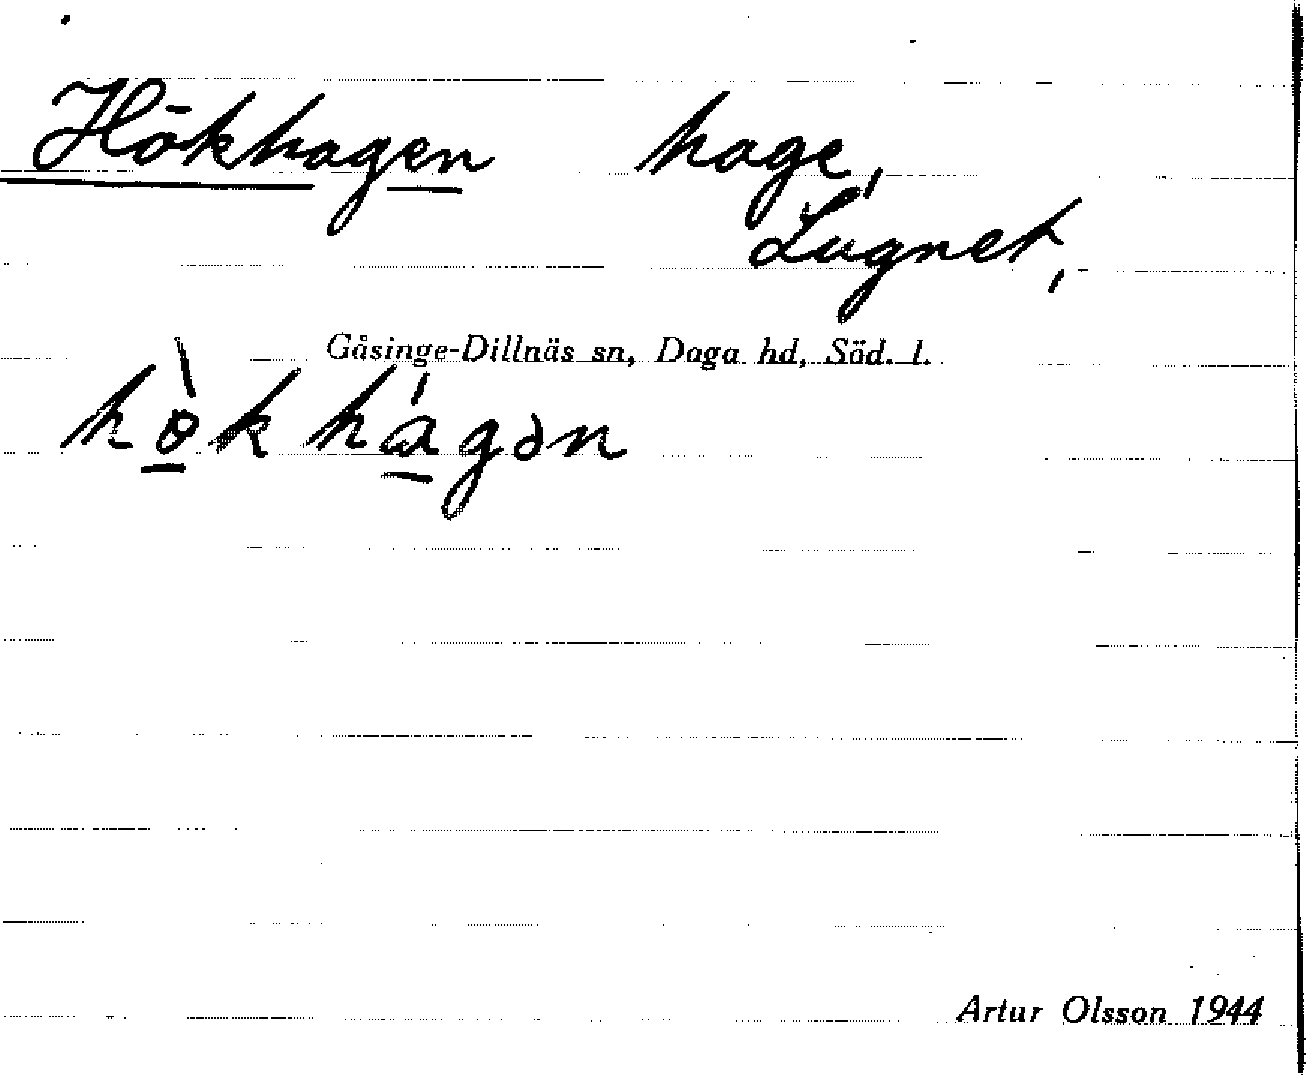 Hökhagen hage,
Lugnet,
Gåsinge-Dillnäs sn, Daga hd, Söd. l.
hò̱k há̱gən
Artur Olsson 1944